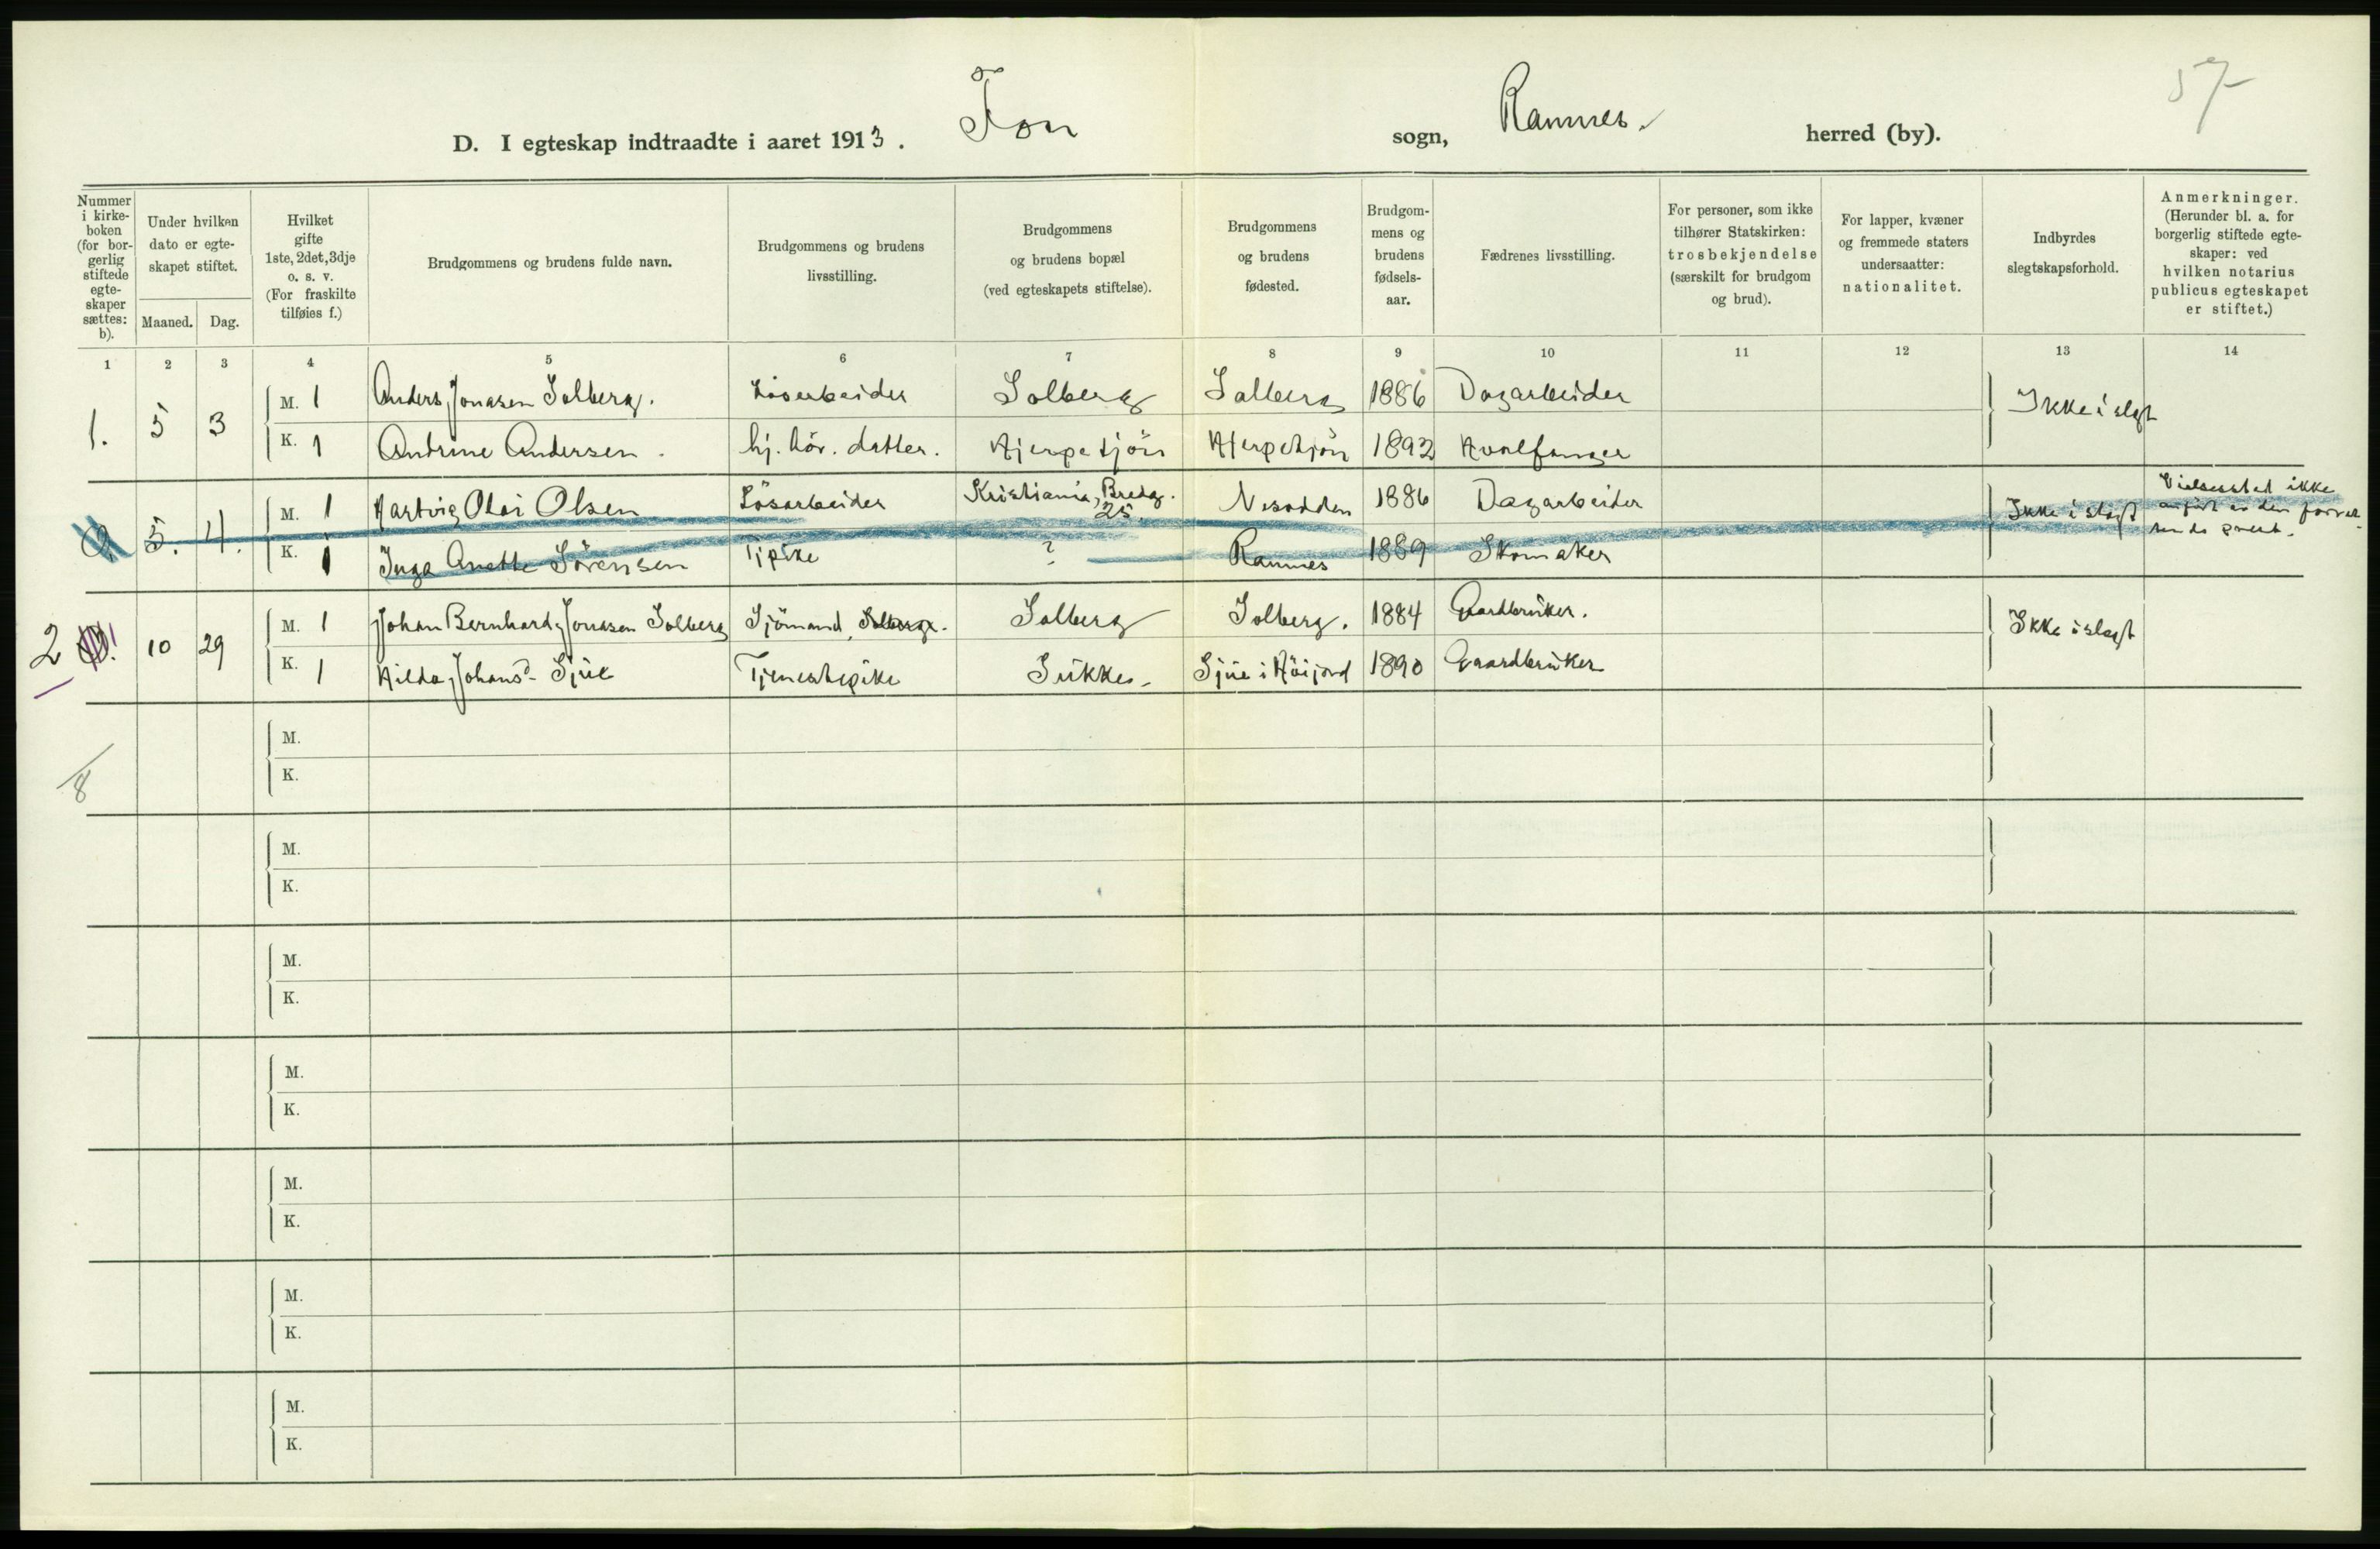 57
D. I egteskap indtraadte i aaret 1913. Fon sogn, Ramnes. herred (by).
Nummer i kirke-boken (for bor-gerlig stiftede egte-skaper sættes: b).
Under hvilken dato er egte-skapet stiftet.
Maaned. Dag.
Hvilket gifte 1ste, 2det, 3dje o. s. v. (For fraskilte tilføies f.)
Brudgommens og brudens fulde navn.
Brudgommens og brudens livsstilling.
Brudgommens og brudens bopæl (ved egteskapets stiftelse).
Brudgommens og brudens fødested.
Brudgom-mens og brudens fødsels-aar.
Fædrenes livsstilling.
For personer, som ikke tilhører Statskirken: trosbekjendelse (særskilt for brudgom og brud).
For lapper, kvæner og fremmede staters undersaatter: nationalitet.
Indbyrdes slegtskapsforhold.
Anmerkninger. (Herunder bl. a. for borgerlig stiftede egte-skaper: ved hvilken notarius publicus egteskapet er stiftet.)
1 2 3 4 5 6 7 8 9 10 11 12 13 14
1. 5 3 M. 1 Anders Jonasen Solberg. Løsarbeider Solberg Solberg 1886 Dagarbeider Ikke i slegt
K. 1 Andrine Andersen. hj. hör. datter. Hjerpetjön Hjerpetjön 1892 Hvalfanger
2 5. 4. M. 1 Hartvig Olai Olsen Lösarbeider Kristiania, Bredg. 25. Nesodden 1886 Dagarbeider Ikke i slegt Vielsessted ikke
K. 1 Inga Anette Sörensen Tjpike ? Ramnes 1889 Skomaker
2 10 29 M. 1 Johan Bernhard Jonasen Solberg Sjömand, Solberg. Solberg Solberg. 1884 Gaardbruker. Ikke i slegt
K. 1 Hilda Johansd. Sjue Tjenestepike Sukke. Sjue i Höijord 1890 Gaardbruker
M.
K.
8
M.
K.
M.
K.
M.
K.
M.
K.
M.
K.
M.
K.